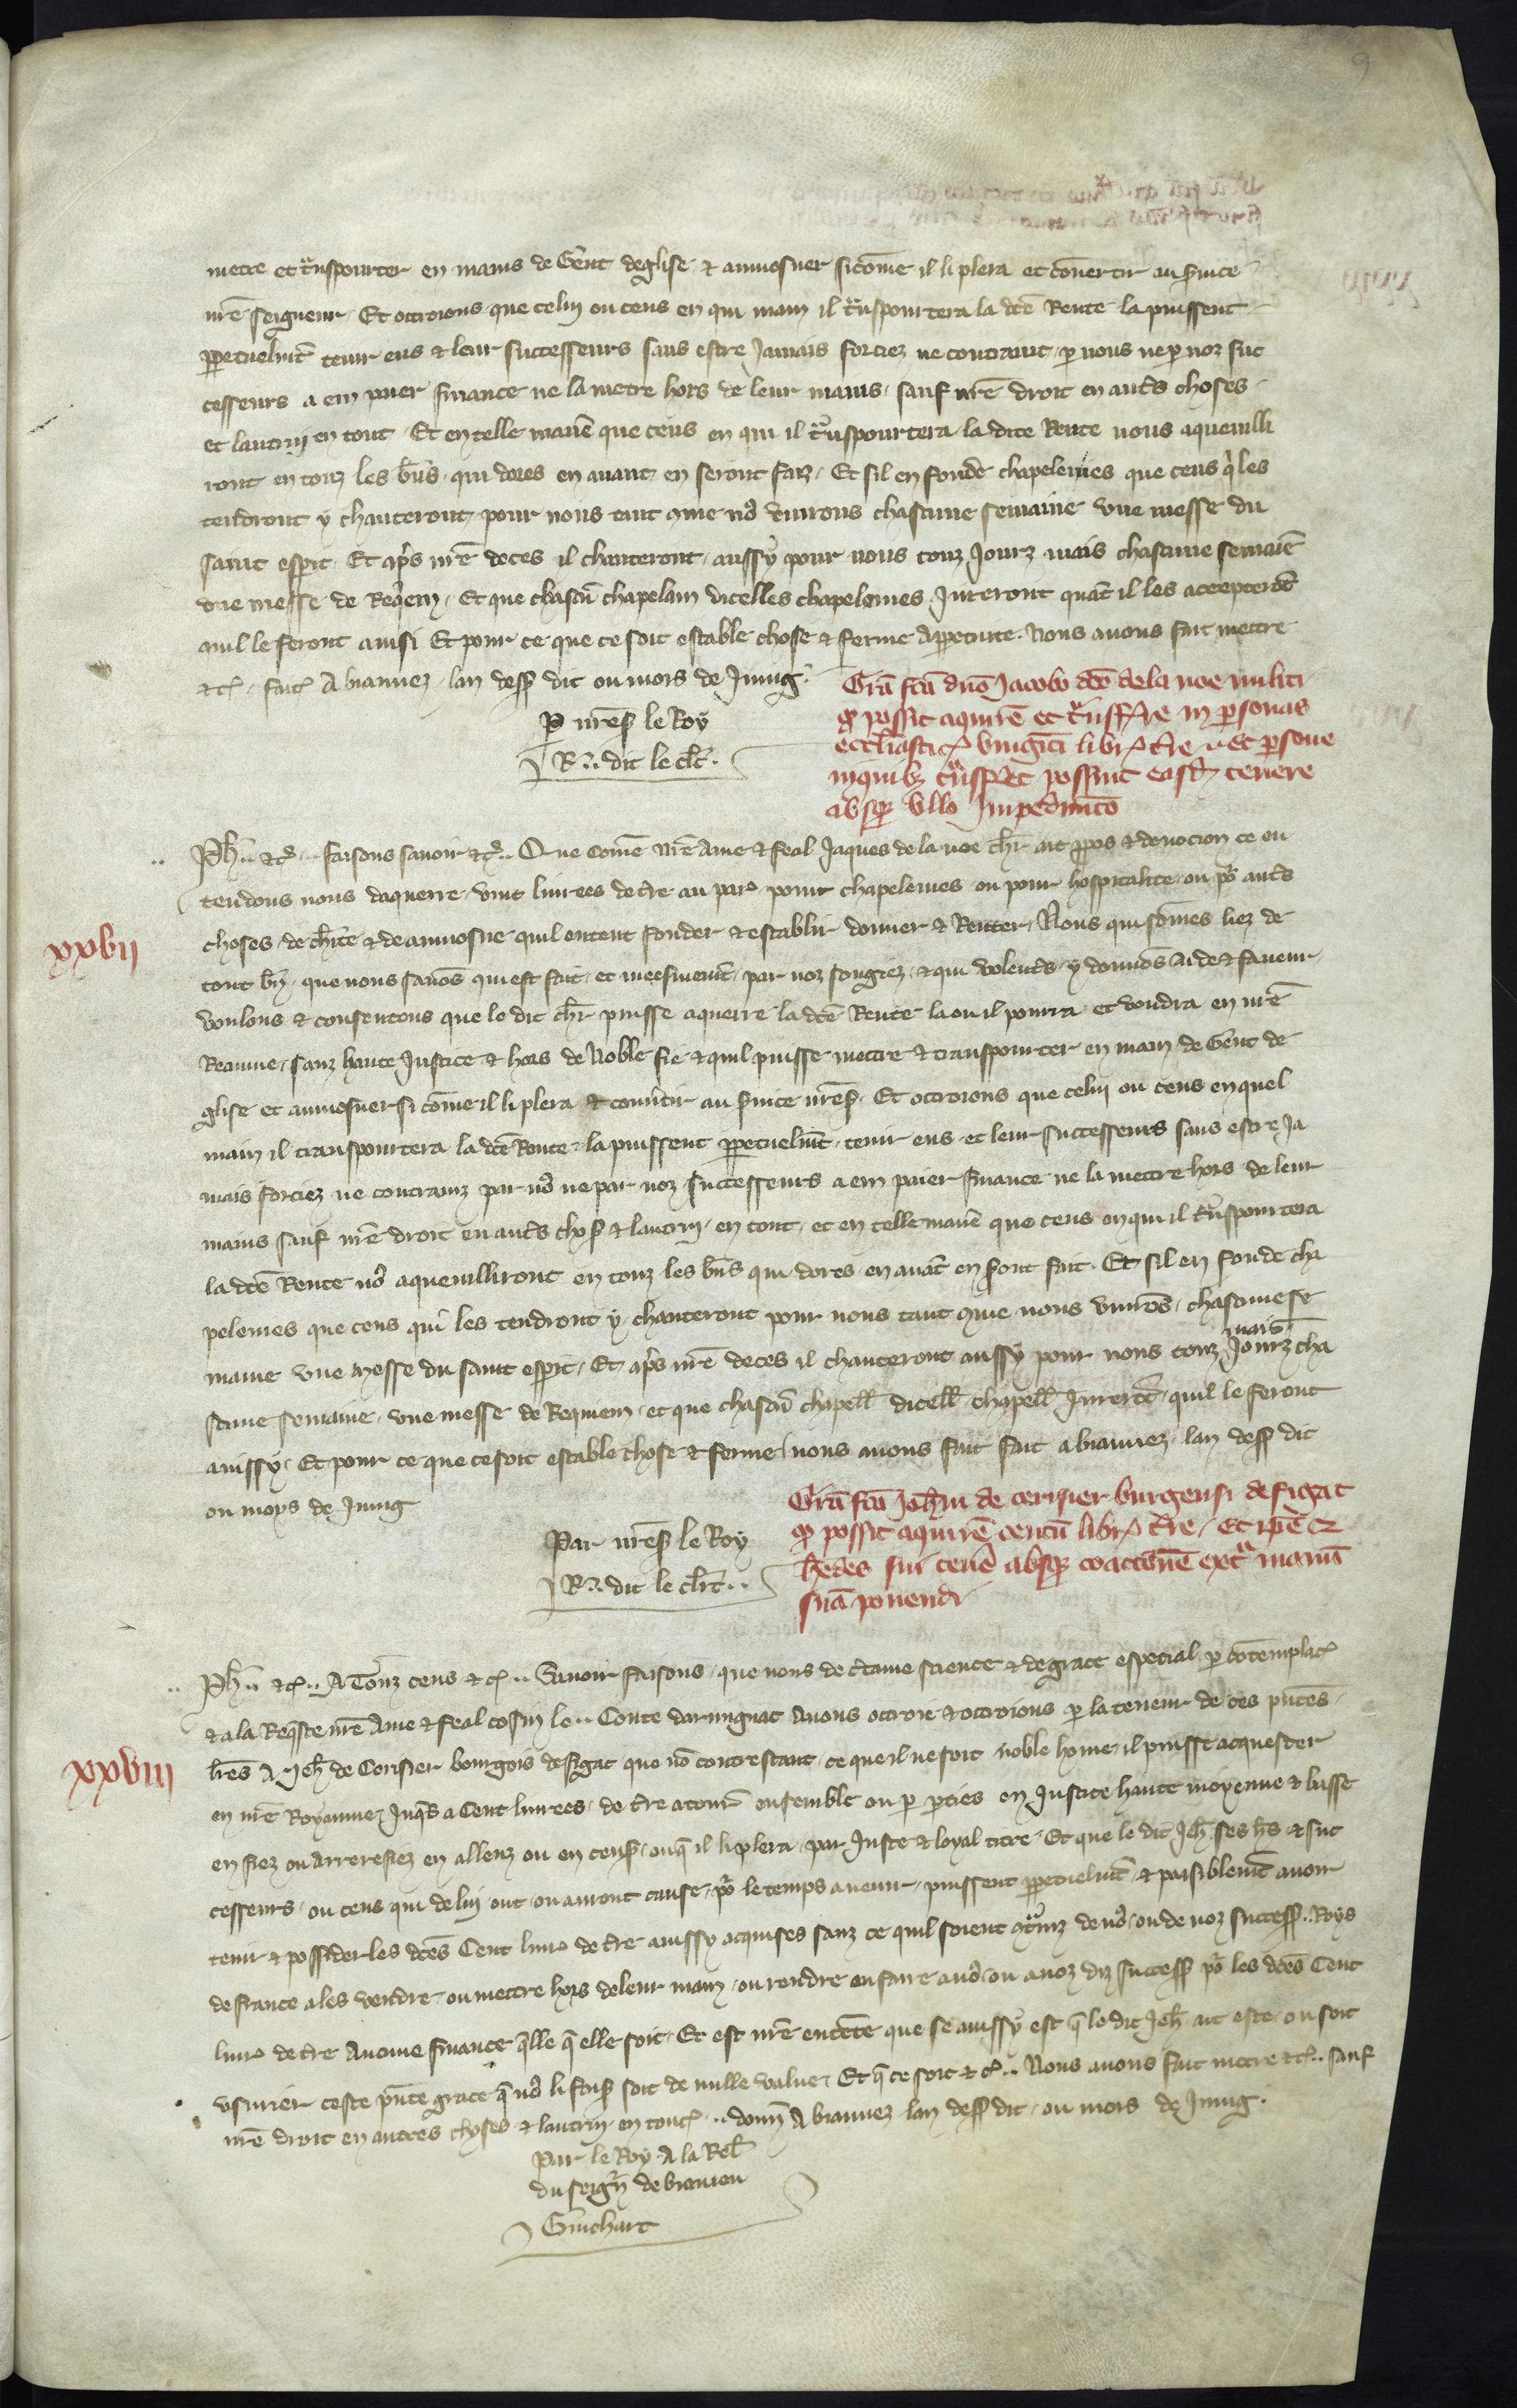 9
metre et tnspourter en mains de Gent deglise & aumosner sicōme il li plera et cōuertir au suice
nrē seigneur Et octroions que celui ou ceus en qui main il tnspourtera la dcē Rente la puissent
ppetuelmt tenir eus & leur successeurs sans estre Jamais forciez ne contraint p nous ne p noz suc
cesseurs a em paier finance ne la metre hors de leur mains sauf nrē droit en autres choses
et lautrui en tout Et en telle maniē que ceus en qui il tnspourtera la dite Rente nous aqueuilli
ront en touz les bns qui dores en auant en seront faiz Et sil en fonde chapelenies que ceus qi les
tendront y chanteront pour nous tant cme no viurons chascune semaine vne messe du
saint esprit Et aps nrē deces il chanteront aussy pour nous touz Jourz mais chascune semaiē
vne messe de Reqem Et que chascū chapelain dicelles chapelenies Jureront quāt il les accepterōt
quil le feront ainsi Et pour ce que ce soit estable chose & ferme a ppetuite Nous auons fait mettre
&c fait A vianuez lan dess dit ou mois de Juing
P nrēs le Roy
R. dit le clc
Grā fcā dnō Jacobo dcō de la noe militi
q possit aquirē et tnsfere in personas
ecclīasticas viugīti libr tre Et persone
in quibz tnsferet possint easd tenere
absq vllo Impedimēto
xxvii
Ph &c faisons sauoir &c Que Comē nrē Ame & feal Jaques de la noe chr ait ppos & deuocion ce en
tendons nous daquerre vint liurees de tre au par pour chapelenies ou pour hospitalite ou por autres
choses de chite & de aumosne quil entent fonder & establir donner & Renter Nous qui sōmes liez de
tout bn que nous sauōs qui est fait et meesmemt par noz sougiez & qui volentrs y donnōs Aide & faueur
voulons & consentons que le dit chr puisse aquerre la dcē Rente la ou il pourra et voudra en nrē
Reaume sanz haute Justice & hors de Noble fie & quil puisse mettre & transpourter en main de Gent de
glise et aumosner si cōme il li plera & conutir au suice nrēs Et octroions que celui ou ceus en quel
main il transpourtera la dcē Rente la puissent ppetuelmt tenir eus et leur successeurs sans estre Ja
mais forciez ne contrainz par no ne par noz successeurs a em paier finance ne la mettre hors de leur
mains sauf nrē droit en autres chos & lautrui en tout et en telle maniē que ceus en qui il tnspourtera
la dcē Rente no aqueuilliront en touz les bns qui dores en auāt en sront fait Et sil en fonde cha
pelenies que ceus qui les tendront y chanteront pour nous tant cme nous viurōs chascune se
maine vne messe du saint esprit Et aps nrē deces il chanteront aussy pour nous touz Jourz mais cha
scune semaine vne messe de Requiem et que chascū chapell dicell chapell Jurerōt quil le feront
ainssy Et pour ce que ce soit estable chose & ferme nous auons fait fait a vianuez lan dess dit
ou moys de Juing
Par nrēs le Roy
R. dit le clrc
Grā fcā Johni de cerisier burgensi de figat
q possit aquirē centū libr tre Et ipē &
heredes sui tenē absq coactionē extra manū
suā ponendi
xxviii
Ph &c A Touz ceus &c Sauoir faisons que nous de ctaine science & de grace especial p cōtemplac
& a la Reqste nrē Ame & feal cosin le Conte darmignac Auons octroie & octroions p la teneur de ces pntes
lrēs A Jeh de Cerisier bourgois de figac que nō contrestant ce que il ne soit noble home il puisse acquester
en nrē Royaume Jusqs a Cent liurees de tre a tourn ensemble ou p pties en Justice haute moyenne & basse
en fiez ou arrerefiez en alleuz ou en cens ou q il li plera par Juste & loyal titre Et que le dit Jeh ses hrs & suc
cesseurs ou ceus qui de lui ont ou auront cause por le temps auenir puissent ppetuelmt & paisiblemt auoir
tenir & possider les dcēs Cent liur de tre ainssy acquises sanz ce quil soient ctrainz de no ou de noz success Roys
de france a les vendre ou mettre hors de leur main ou rendre ou faire a no ou a noz diz success por les dcēs Cent
liur de tre Aucune finance qlle q elle soit Et est nrē entēte que se ainssy est q le dit Jeh ait este ou soit
vsurier ceste pnte grace q no li faiss soit de nulle value Et q ce soit &c Nous auons fait metre &c sauf
nrē droit en autres choses & lautrui en tout donn A vianuez lan dess dit ou mois de Juing
Par le Roy A la Rel
du seign de biauieu
Guichart